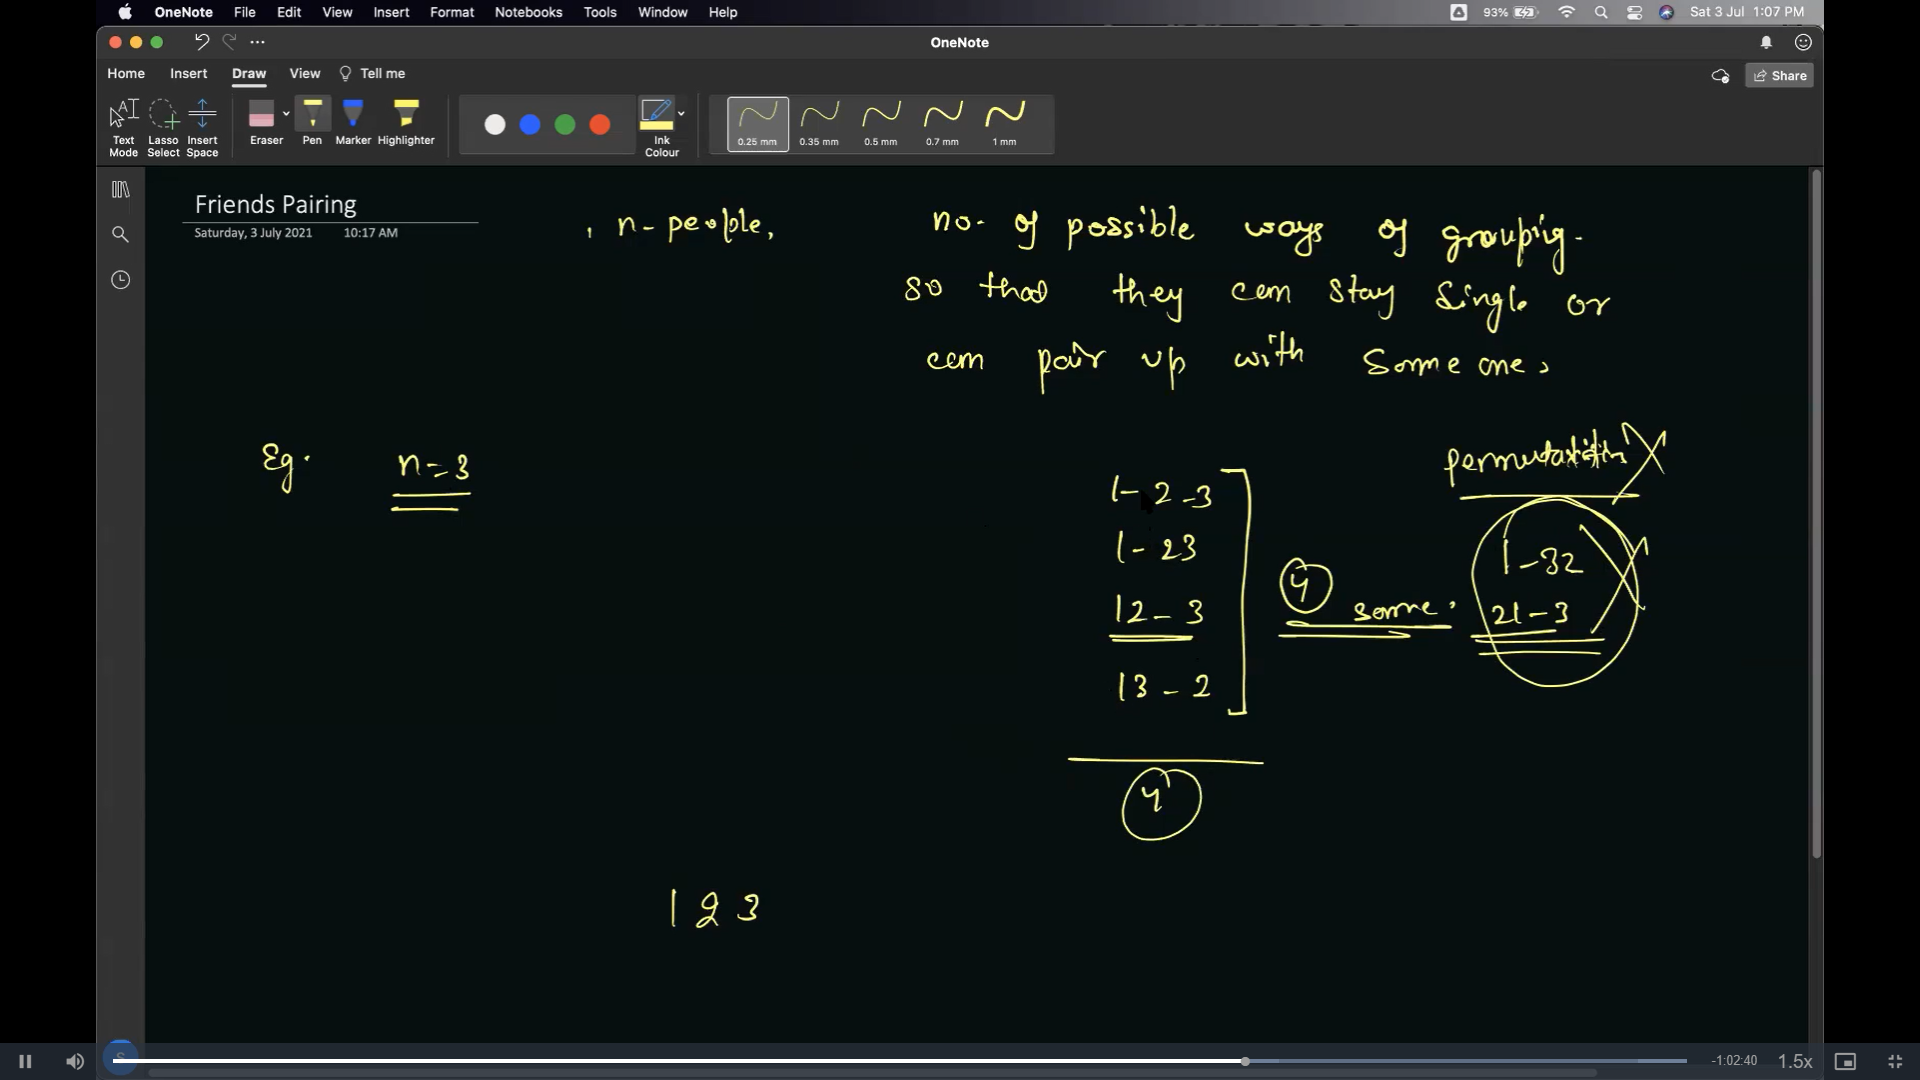 OneNote File Edit View Insert Format Notebooks Tools Window Help 93% Sat 3 Jul 1:07 PM
OneNote
Home Insert Draw View Tell me Share
Text Mode Lasso Select Insert Space Eraser Pen Marker Highlighter Ink Colour 0.25 mm 0.35 mm 0.5 mm 0.7 mm 1 mm
Friends Pairing
Saturday, 3 July 2021 10:17 AM
n - people, no. of possible ways of grouping.
so that they can stay single or
can pair up with someone.
Eg. n = 3
permutation
1 - 2 - 3
1 - 23
1 - 32
4
12 - 3
same.
21 - 3
13 - 2
4
1 2 3
-1:02:40 1.5x